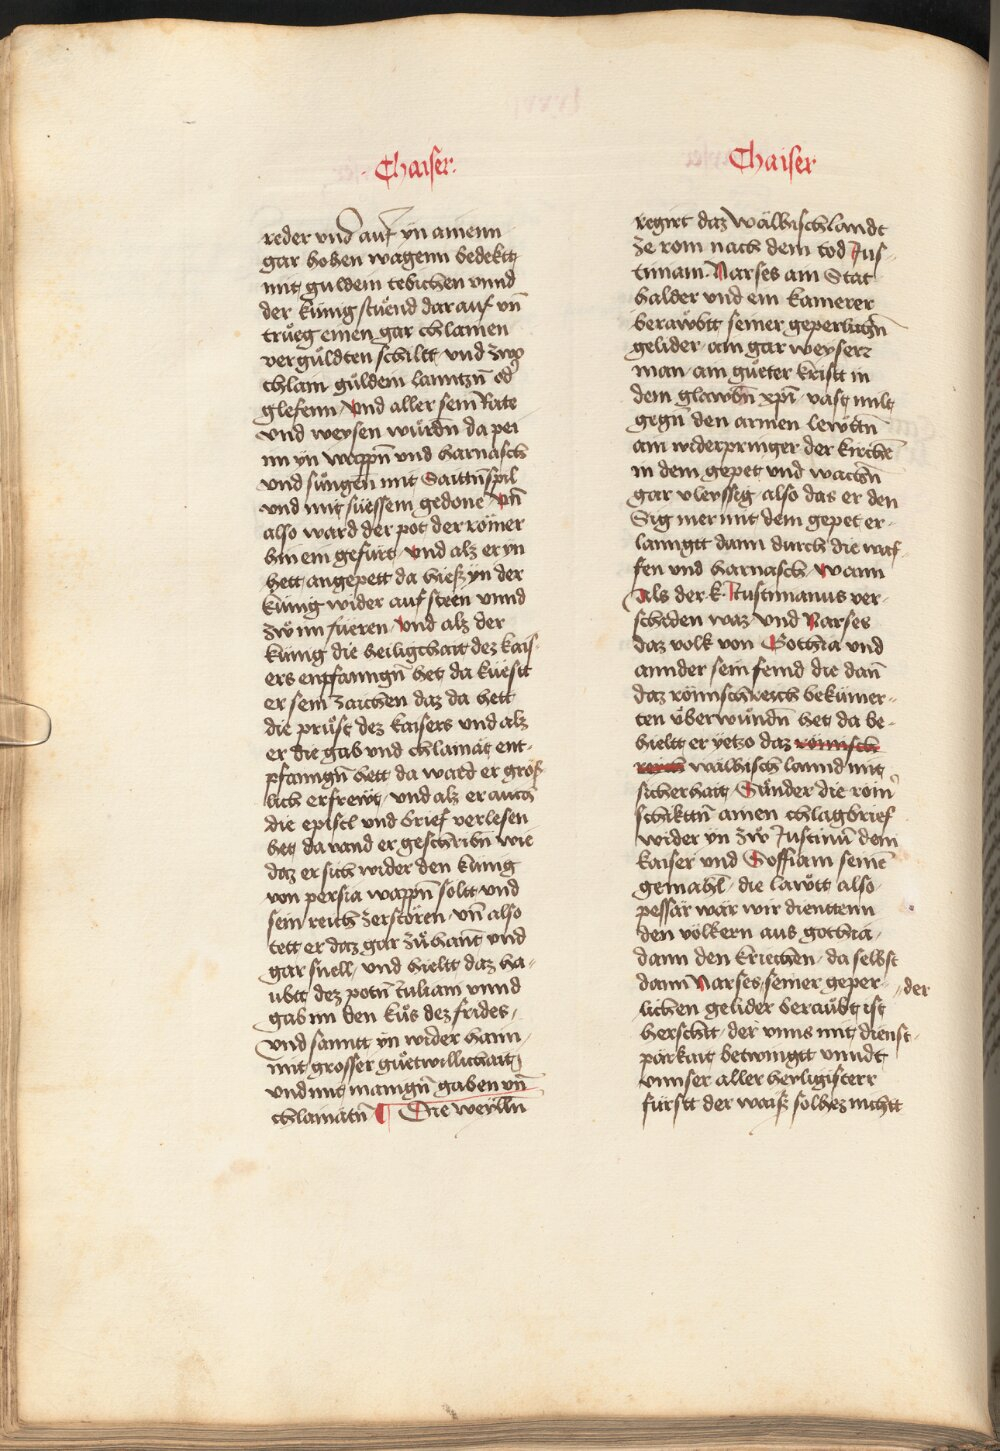 Chaiser.
reder vnd auf yn ainenn
gar hohen wagenn bedektt
mit guldein tebichen vnnd
der künig stuͤend dar auf vn̄
truͤeg einen gar chlainen
verguͤldten schiltt vnd zwo
chlain guͤldein lanntzn̄ od'
glefenn / vnd aller sein Rate
vnd weysen wuͤrdn̄ da pei
im yn wappn̄ vnd harnasch
vnd suͤngen mit Saittn̄spil
vnd mit süessem gedone / vn̄
also ward der pot der römer
hin ein gefürt / vnd alz er yn
hett angepett da hiesz yn der
künig wider auf steen vnnd
zw im füeren / vnd alz der
künig die heiligchait dez kais-
ers enpfanngn̄ het da küestt
er sein zaichen daz da hett
die prüst dez kaisers vnd alz
er die gab vnd chlainät ent-
pfanngn̄ hett da ward er grösz-
lich erfrewt / vnd alz er auch
die epistl vnd brief verlesen
het da vand er geschribn̄ wie
daz er sich wider den künig
von persia wappn̄ soltt vnd
sein reich zerstören / vn̄ also
tett er daz gar zuͤhant vnd
gar snell / vnd hieltt daz ha-
ubtt dez potn̄ Iuliani vnnd
gab im den kuͤs dez frides /
vnd sanntt yn wider haim /
mit grosser guͤetwillichait
vnd mit manign̄ gaben vn̄
chlainätn̄ ¶ Die weylln̄
Chaiser
regirt daz wälhischlandt
ze rom nach dem tod Jus-
tiniani Narses ain Stat
halder vnd ein kamerer
berawbtt seiner geperlichn̄
gelider / ain gar weyserr
man / ain guͤeter kristt in
dem glawbn̄ xp̄i / vast milt
gegn̄ den armen lewttn̄
ain widerpringer der kirchn̄
in dem gepet vnd wachn̄
gar vleyssig / also das er den
Sig mer mit dem gepet er-
lanngtt dann durch die waf-
fen vnd harnasch / wann
Als der k. Justinianus ver-
schiden waz vnd Narses
daz volk von Gothia vnd
annder sein feind die dan̄
daz römischreich bekümer-
ten überwundn̄ het da be-
hieltt er yetzo daz römisch
reich wälhisch lannd mit
sicherhait / Sunder die röm'
schikttn̄ ainen chlagbrief
wider yn zw Justinū dem
kaiser vnd Soffiam seinē
gemahl / die lawtt also /
pessär wär wir dienttenn
den völkern aus gothia /
dann den kriechen / da selbst
dann Narses / seiner geper- / der
lichen gelider beraubt ist
herscht / der vnns mit dienst-
parkait betwingtt vnndt
vnnser aller heyligisterr
fürstt der waisz solhez nichtt